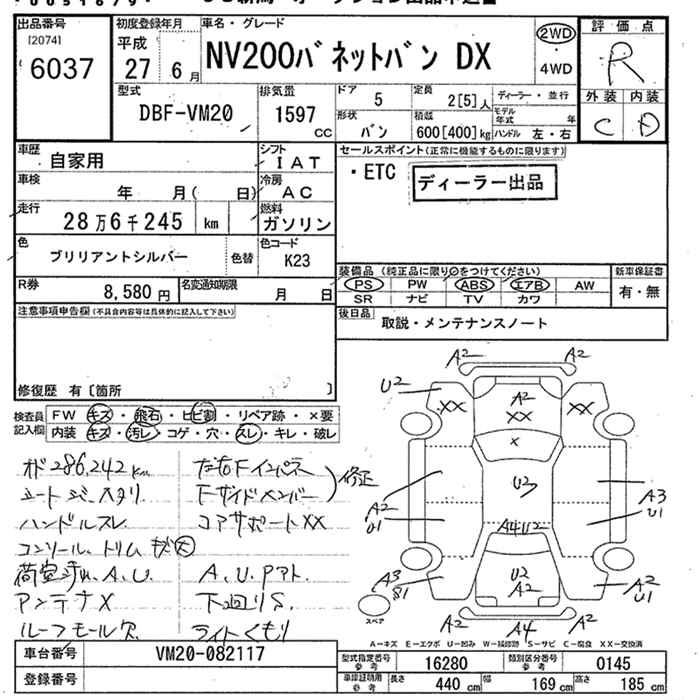 出品番号
[2074]
6037
初度登録年月
平成
27年 6月
車名・グレード
NV200バネットバン DX
2WD
4WD
評価点
R
外装 内装
C D
型式
DBF-VM20
排気量
1597 cc
ドア 5
定員 2[5]人
ディーラー・並行
形状 バン
積載 600[400]kg
モデル年式 年
ハンドル 左・右
車歴 自家用
シフト IAT
車検 年 月( 日)
冷房 AC
走行 28万6千245 km
燃料 ガソリン
色 ブリリアントシルバー 色替
色コード K23
R券 8,580円
名変通知期限 月 日
セールスポイント(正常に機能するものに限ります)
・ETC
ディーラー出品
装備品(純正品に限り○をつけてください)
PS PW ABS エアB AW
SR ナビ TV カワ
新車保証書
有・無
後日品
取説・メンテナンスノート
注意事項申告欄(不具合内容等は具体的に記入して下さい)
修復歴 有〔箇所 〕
検査員記入欄
FW キズ・飛石・ヒビ割・リペア跡・×要
内装 キズ・汚レ・コゲ・穴・スレ・キレ・破レ
オド286,242km
シートシミ、ヘタリ
ハンドルスレ
コンソール、トリムキズ大
荷室汚れ、A、U.
アンテナX
ルーフモール欠
左右Fインパネ
Fサイドメンバー
修正
コアサポートXX
A、U、Pアト.
下廻りS.
ライトくもり
A2 A2
U2 XX A2 XX XX
X
A2 U1 U2 A3 U1
A4U2
A3 S1 U2 A2 A2 U1
A2 A4 A2
スペア
A-キズ E-エクボ U-凹み W-補修跡 S-サビ C-腐食 XX-交換済
車台番号 VM20-082117
登録番号
型式指定番号参考 16280
類別区分番号参考 0145
車庫証明用参考 長さ 440cm 幅 169cm 高さ 185cm